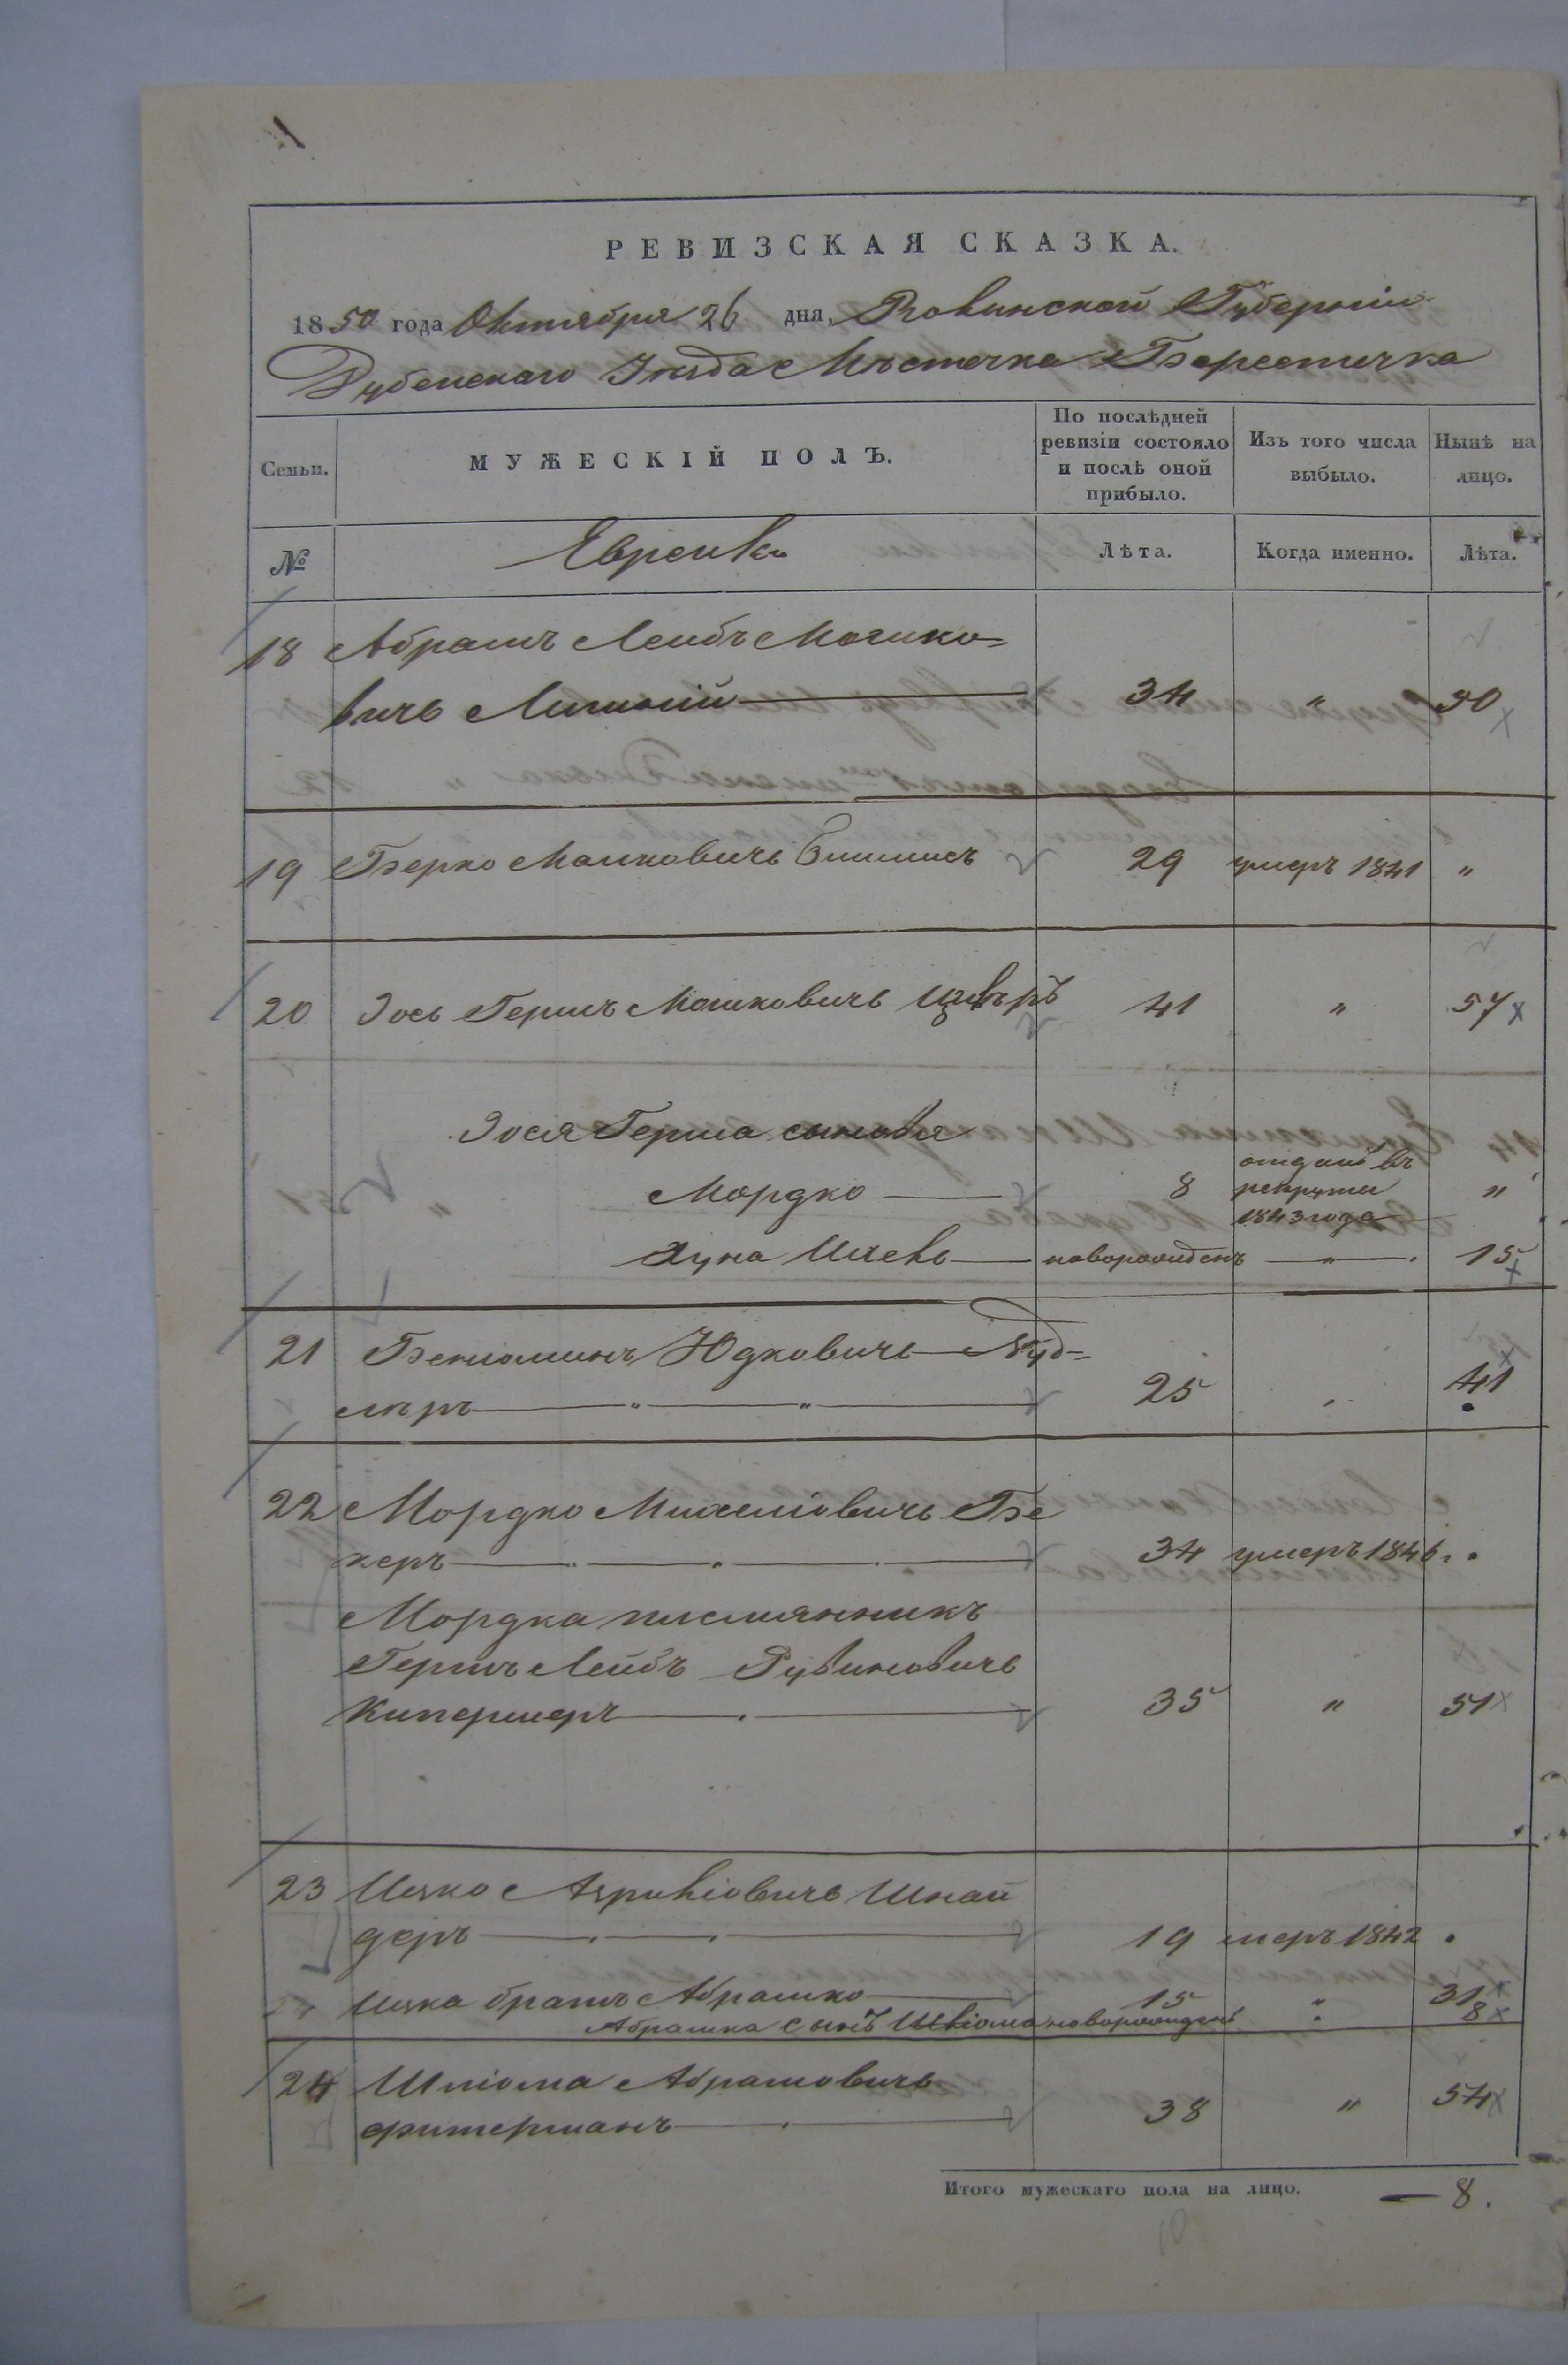 РЕВИЗСКАЯ СКАЗКА.
1850 года Октября 26 дня, Волынской Губерніи
Дубенскаго Уезда Мѣстечка Берестечка
Семьи.
МУЖЕСКІЙ ПОЛЪ.
По послѣдней ревизіи состояло и послѣ оной прибыло.
Изъ того числа выбыло.
Нынѣ на лицо.
№
Евреивъ
Лѣта.
Когда именно.
Лѣта.
18 Абрамъ Лейбъ Мошко-
вичъ 34 " 50
19 Берко Мошковичъ 29 умеръ 1841 "
20 Іось Гершъ Мошковичъ 41 " 57
Іося Герша сыновья
отданъ въ
Мордко 8 рекруты "
1843 года
Хуна новорожденъ " 15
21 Беніоминъ Юдковичъ Нуд-
леръ " " 25 " 41
22 Мордко Михеліовичъ Бе
керъ 34 умеръ 1846 г.
Мордка племянникъ
Гершъ Лейбъ Рувиновичъ
Кипермеръ 35 " 51
23 Ицко Шнай
деръ 19 умеръ 1842
Ицка братъ Абрашко 15 " 31
Абрашка сынъ Шліома новорожденъ 8
24 Шліома Абрамовичъ
фитерманъ 38 " 54
Итого мужескаго пола на лицо. — 8.